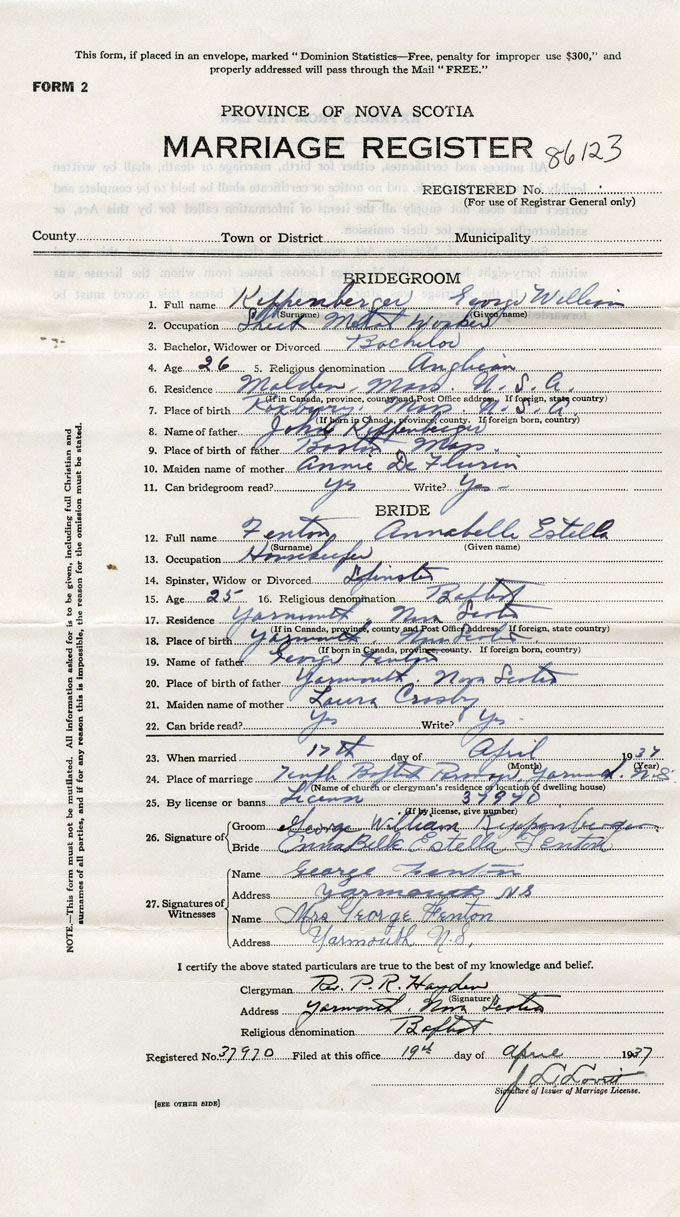 This form, if placed in an envelope, marked "Dominion Statistics—Free, penalty for improper use $300," and
properly addressed will pass through the Mail "FREE."
FORM 2
PROVINCE OF NOVA SCOTIA
MARRIAGE REGISTER 86123
REGISTERED No.
(For use of Registrar General only)
County Town or District Municipality
BRIDEGROOM
1. Full name Kippenberger George William
(Surname) (Given name)
2. Occupation Sheet Metal Worker
3. Bachelor, Widower or Divorced Bachelor
4. Age 26 5. Religious denomination Anglican
6. Residence Malden, Mass. U.S.A.
(If in Canada, province, county and Post Office address. If foreign, state country)
7. Place of birth Roxbury, Mass. U.S.A.
(If born in Canada, province, county. If foreign born, country)
8. Name of father John Kippenberger
9. Place of birth of father Boston Mass.
10. Maiden name of mother Annie De
11. Can bridegroom read? Yes Write? Yes
BRIDE
12. Full name Fenton Annabelle Estella
(Surname) (Given name)
13. Occupation Housekeeper
14. Spinster, Widow or Divorced Spinster
15. Age 25 16. Religious denomination Baptist
17. Residence Yarmouth Nova Scotia
(If in Canada, province, county and Post Office address. If foreign, state country)
18. Place of birth Yarmouth, Nova Scotia
(If born in Canada, province, county. If foreign born, country)
19. Name of father George Fenton
20. Place of birth of father Yarmouth, Nova Scotia
21. Maiden name of mother Laura Crosby
22. Can bride read? Yes Write? Yes
23. When married 17th day of April 1937
(Month) (Year)
24. Place of marriage Temple Baptist Parsonage, Yarmouth, N.S.
(Name of church or clergyman's residence or location of dwelling house)
25. By license or banns License 37970
(If by license, give number)
26. Signature of Groom George William Kippenberger
Bride EnnaBelle Estella Fenton
27. Signatures of Witnesses
Name George Fenton
Address Yarmouth NS
Name Mrs George Fenton
Address Yarmouth N.S.
I certify the above stated particulars are true to the best of my knowledge and belief.
Clergyman Rev. P. R. Hayden
(Signature)
Address Yarmouth, Nova Scotia
Religious denomination Baptist
Registered No. 37970 Filed at this office 19th day of April 1937
Signature of Issuer of Marriage License.
[SEE OTHER SIDE]
NOTE.—This form must not be mutilated. All information asked for is to be given, including full Christian and
surnames of all parties, and if for any reason this is impossible, the reason for the omission must be stated.